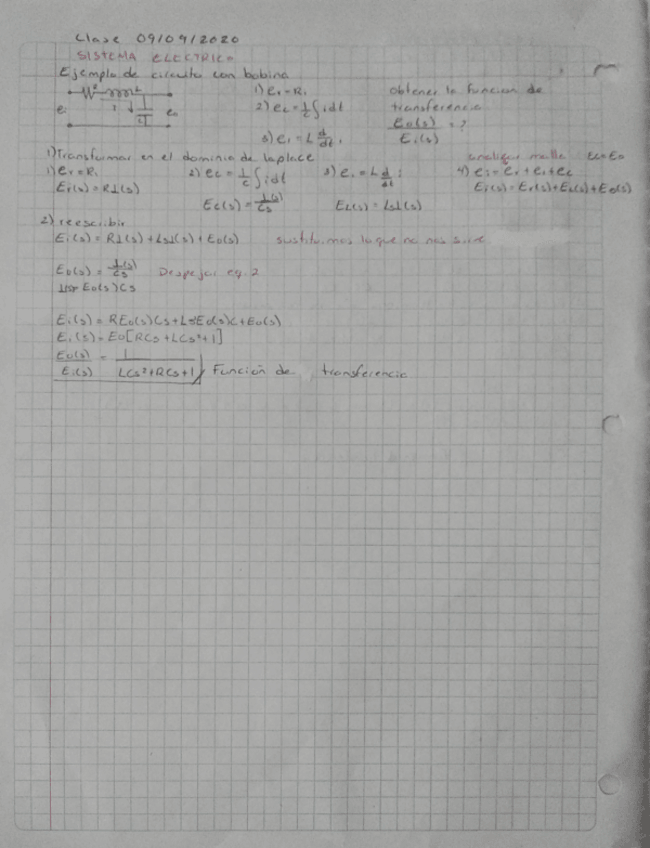 Clase 09/09/2020
SISTEMA ELECTRICO
Ejemplo de circuito con bobina
R L
ei i C eo
1) er = Ri
2) ec = 1/c ∫ idt
3) el = L d/dt i
obtener la funcion de
transferencia
Eo(s)/Ei(s) = ?
1) Transformar en el dominio de laplace
analizar malla ec = eo
1) er = Ri 2) ec = 1/c ∫ idt 3) el = L d/dt i 4) ei = er + el + ec
Er(s) = RI(s) Ec(s) = I(s)/Cs EL(s) = LsI(s) Ei(s) = Er(s) + EL(s) + Eo(s)
2) reescribir
Ei(s) = RI(s) + LsI(s) + Eo(s) sustituimos lo que no nos sirve
Eo(s) = I(s)/Cs Despejar eq. 2
Eo(s)Cs
Ei(s) = REo(s)Cs + Ls²Eo(s)C + Eo(s)
Ei(s) = Eo[RCs + LCs² + 1]
Eo(s)/Ei(s) = 1/LCs² + RCs + 1 Función de transferencia